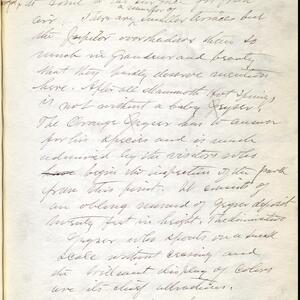 a number of
There are smaller terraces but
the Jupiter overshadows them so
much in grandeur and beauty
that they hardly deserve mention
here. After all Mammoth Hot Springs
is not without a baby Geyser.
The Orange Geyser has to answer
for his species and is much
admired by the visitors who
begin the inspection of the park
from this point. It consists of
an oblong mound of Geyser deposit
twenty feet in height. The diminutive
Geyser who spouts on a small
scale without ceasing and
the brilliant display of colors
are its chief attractions.